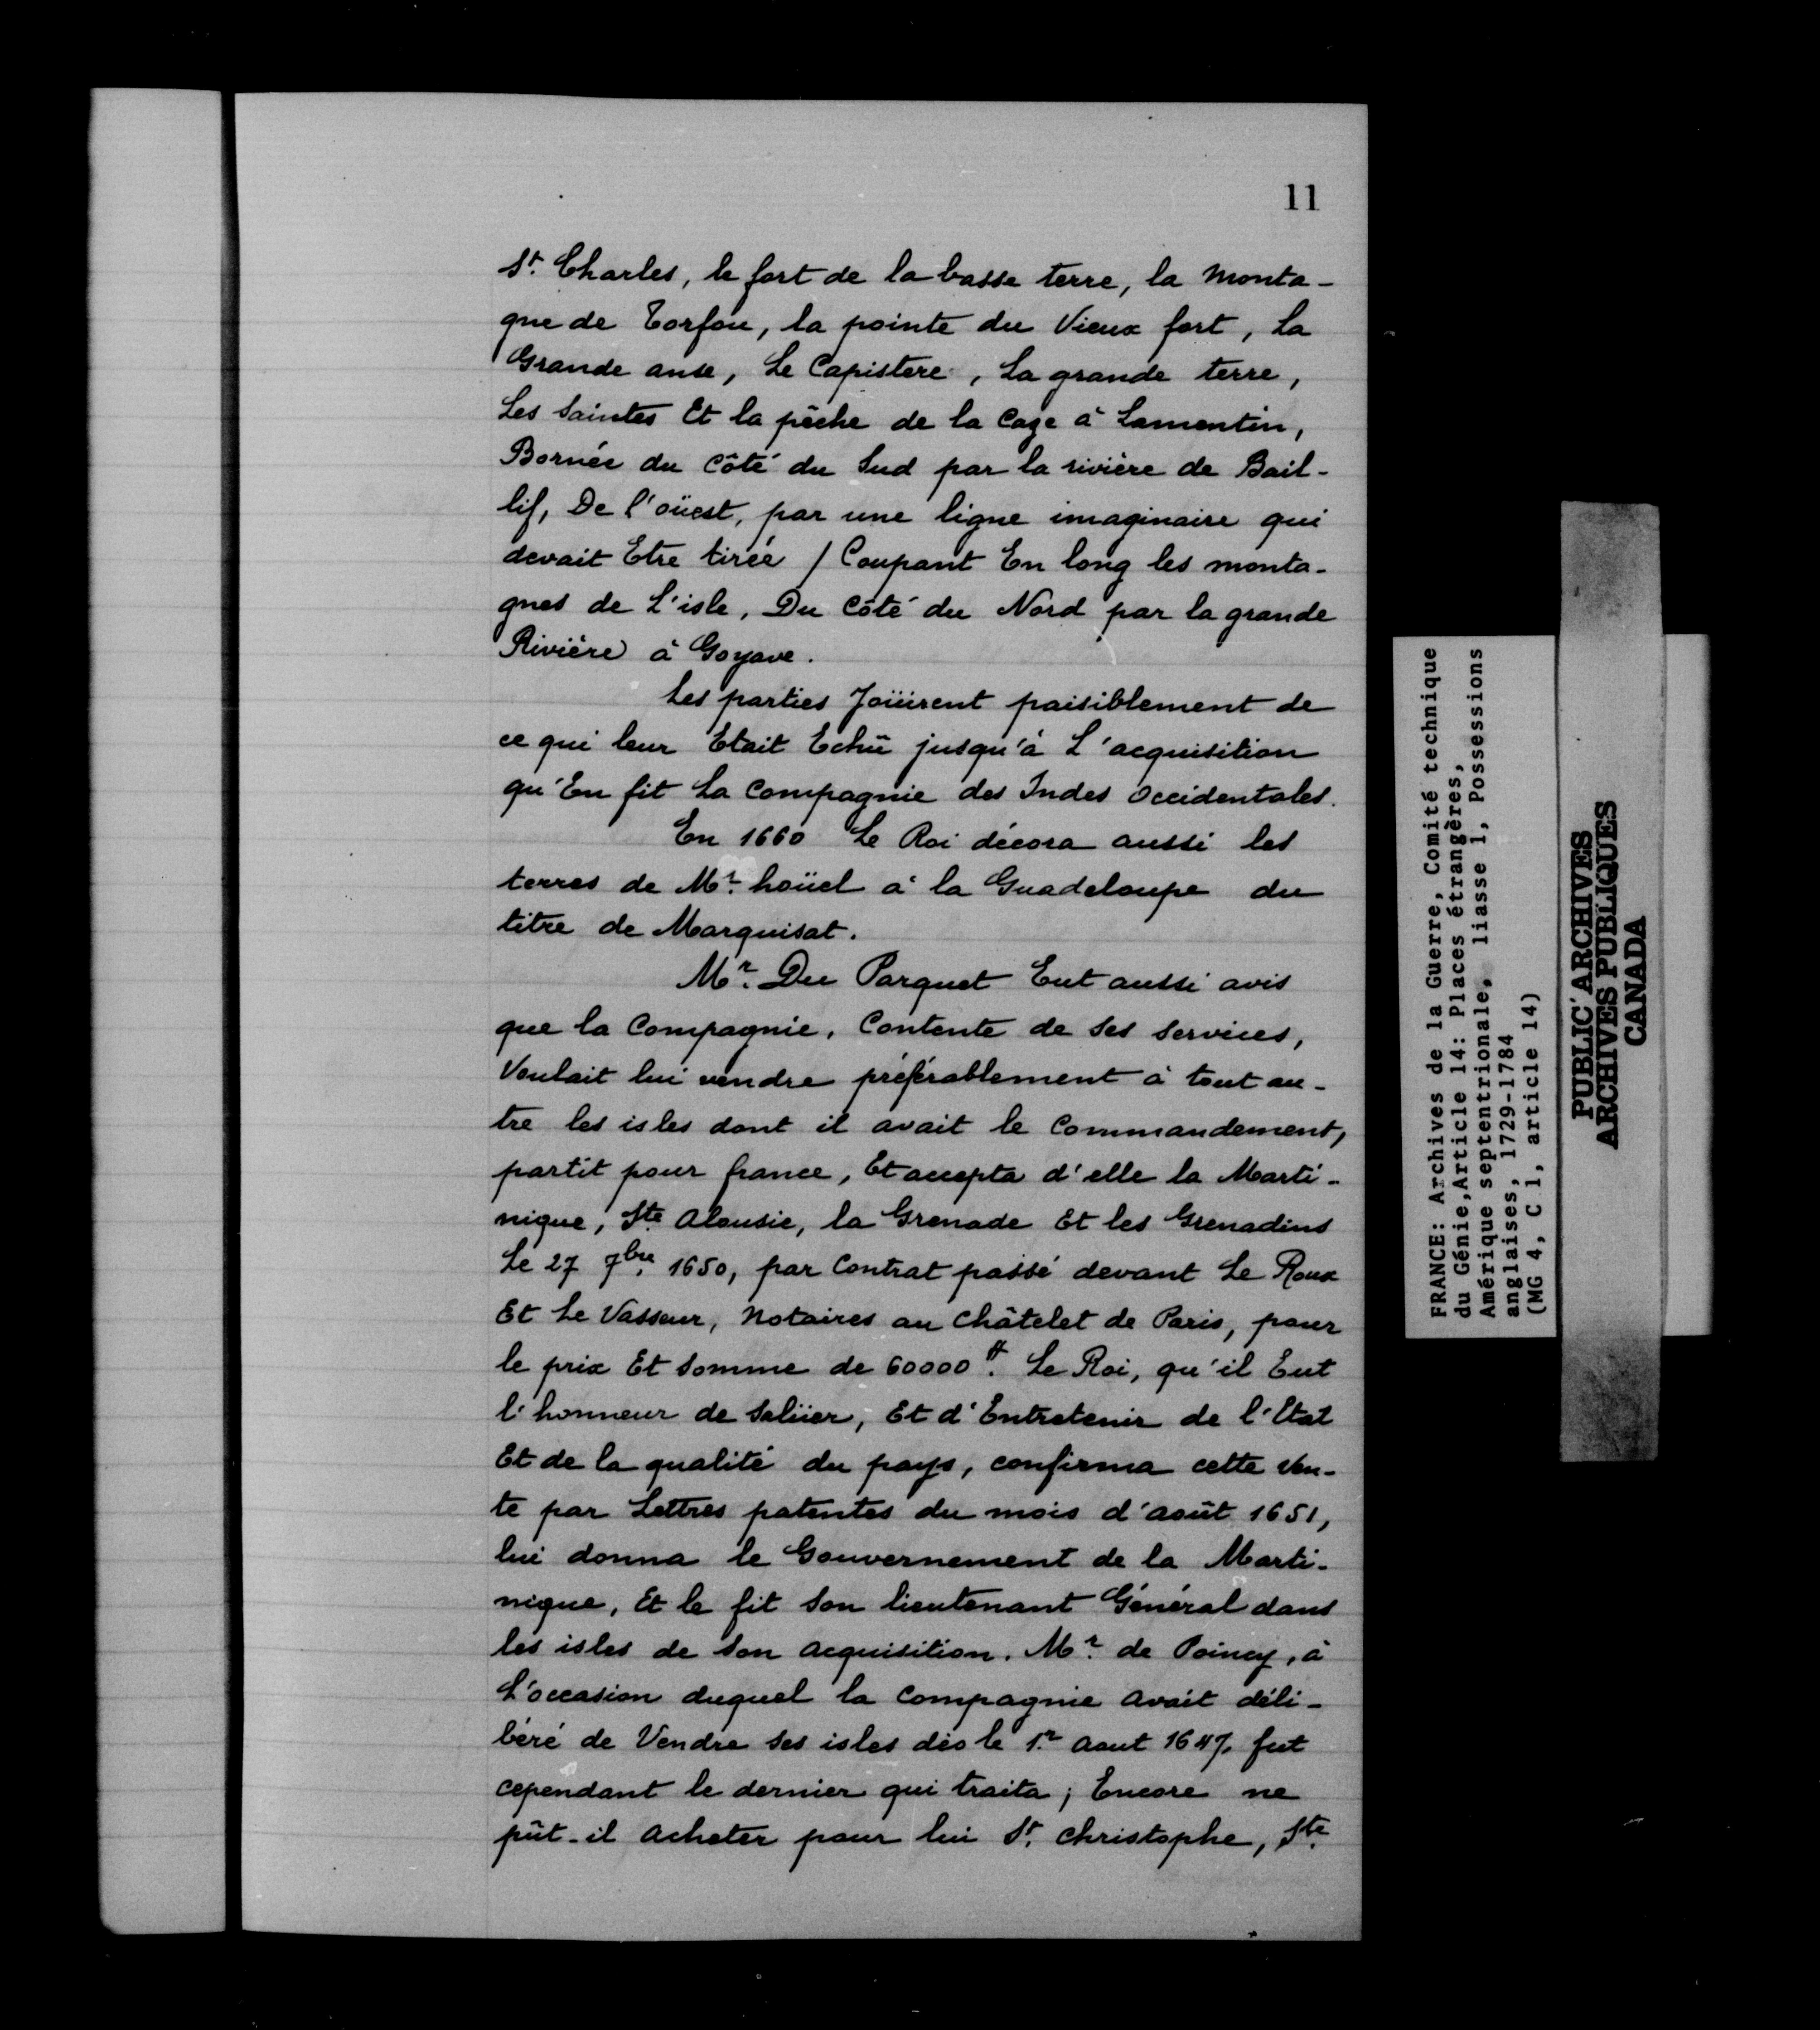 11
St. Charles, le fort de la basse terre, la Monta-
gne de Torfou, la pointe du Vieux fort, La
Grande anse, Le Capistere, La grande terre,
Les Saintes Et la pêche de la Caze à Lamentin,
Bornée du Côté du Sud par la rivière de Bail-
lif, De l'oüest, par une ligne imaginaire qui
devait Etre tirée / Coupant En long les monta-
gnes de L'isle, Du Côté du Nord par la grande
Rivière à Goyave.
Les parties Joüirent paisiblement de
ce qui leur Etait Echû jusqu'à L'acquisition
qu'En fit La Compagnie des Indes occidentales.
En 1660 Le Roi décora aussi les
terres de Mr. hoüel à la Guadeloupe du
titre de Marquisat.
Mr. Du Parquet Eut aussi avis
que la Compagnie, Contente de Ses Services,
Voulait lui vendre préférablement à tout au-
tre les isles dont il avait le Commandement,
partit pour france, Et accepta d'elle la Marti-
nique, Ste. Alousie, la Grenade Et les Grenadins
Le 27 7bre. 1650, par Contrat passé devant Le Roux
Et Le Vasseur, Notaires au Châtelet de Paris, pour
le prix Et Somme de 60000 ₶. Le Roi, qu'il Eut
l'honneur de Salüer, Et d'Entretenir de l'Etat
Et de la qualité du pays, confirma cette Ven-
te par Lettres patentes du mois d'août 1651,
lui donna le Gouvernement de la Marti-
nique, Et le fit Son lieutenant Général dans
les isles de Son acquisition. Mr. de Poincy, à
L'occasion duquel la Compagnie avait déli-
béré de Vendre Ses isles dès le 1r. aout 1647, fut
cependant le dernier qui traita; Encore ne
pût-il Acheter pour lui St. Christophe, Ste.
FRANCE: Archives de la Guerre, Comité technique
du Génie, Article 14: Places étrangères,
Amérique septentrionale, liasse 1, Possessions
anglaises, 1729-1784
(MG 4, C 1, article 14)
PUBLIC ARCHIVES
ARCHIVES PUBLIQUES
CANADA